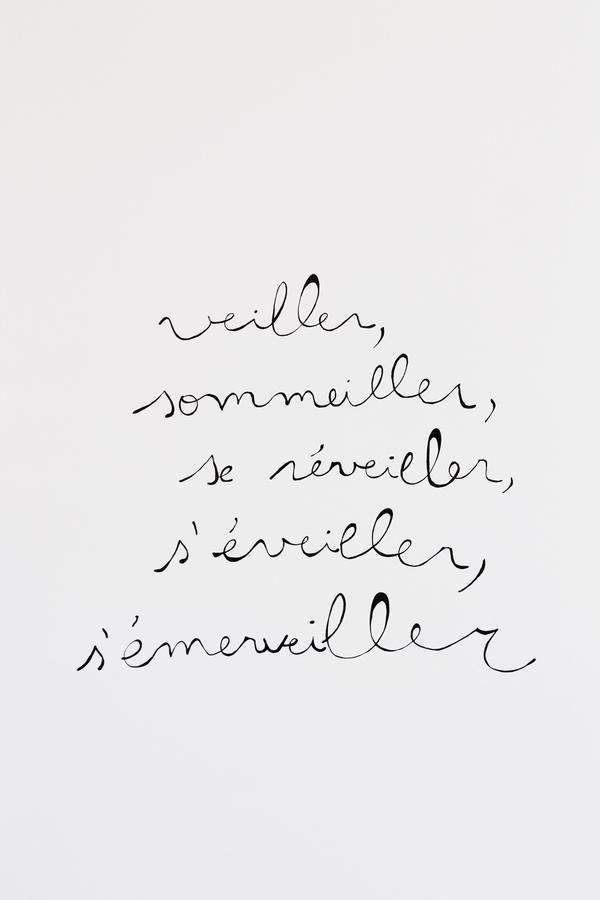 veiller,
sommeiller,
se réveiller,
s'éveiller,
s'émerveiller